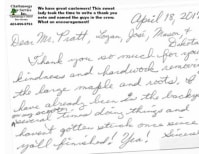 Chattanooga
Tree Service
We have great customers! This sweet
lady took the time to write a thank you
note and named the guys in the crew.
What an encouragement!
April 18, 201
Dear Mr. Pratt, Logan, José, Mason &
Dakota
Thank you so much for your
kindness and hardwork removing
the large maple and roots. I
have already been in the backyard
doing things and
haven't gotten stuck once since
ya'll finished! Yea! Sincere